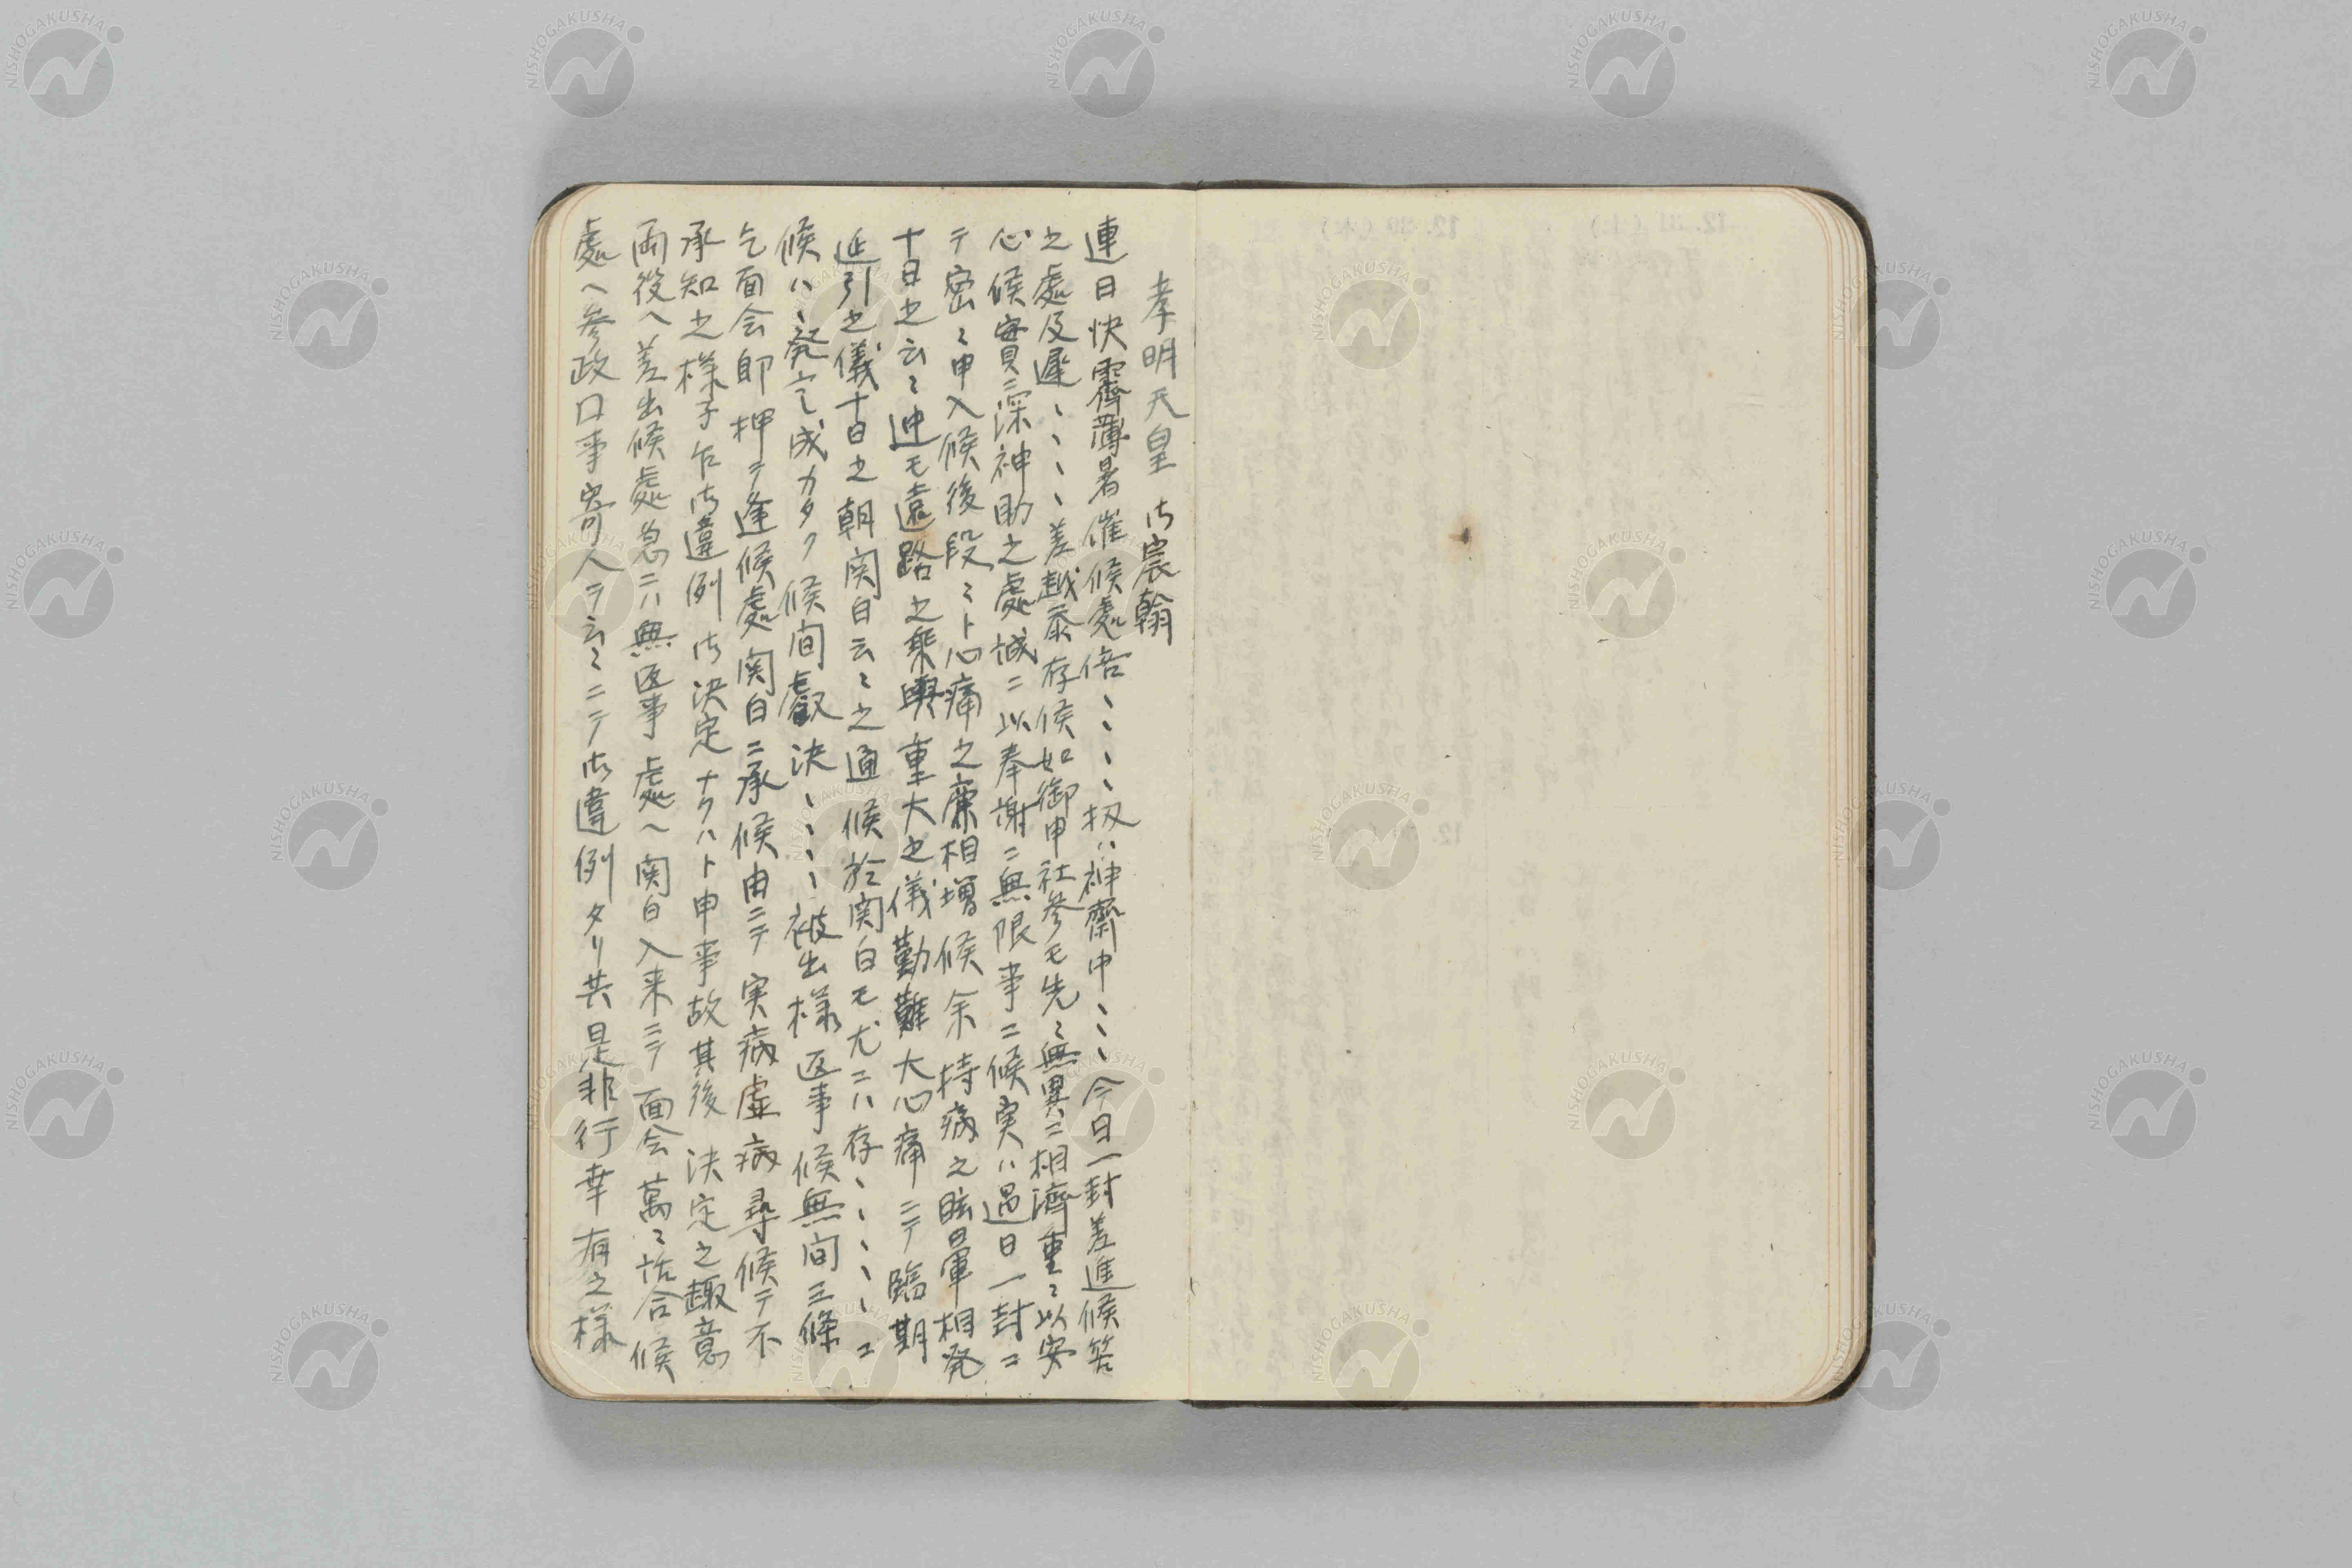 孝明天皇 御宸翰
連日快霽薄暑催候處倍、、、、扨ハ神齋中、、、今日一封差進候答
之處及遅、、、、差越忝存候如御申社参モ先々無異ニ相濟重々以安
心候實ニ深神助之處誠ニ以奉謝ニ無限事ニ候実ハ過日一封ニ
テ密々申入候後段々ト心痛之廉相増候余持病之眩暈相発
十日之云々迚モ遠路之乗輿重大之儀勤難大心痛ニテ臨期
延引之儀十日之朝関白云々之通候於関白モ尤ニハ存、、、、、ニ
候ハ、発言成カタク候間叡決、、、、被出様返事候無間三條
乞面会即押テ逢候處関白ニ承候由ニテ実病虚病尋候テ不
承知之様子乍御違例御決定ナクハト申事故其後決定之趣意
両役ヘ差出候處急ニハ無返事處ヘ関白入来ニテ面会萬々話合候
處ヘ参政口事寄人ラ云々ニテ御違例タリ共是非行幸有之様
NISHOGAKUSHA